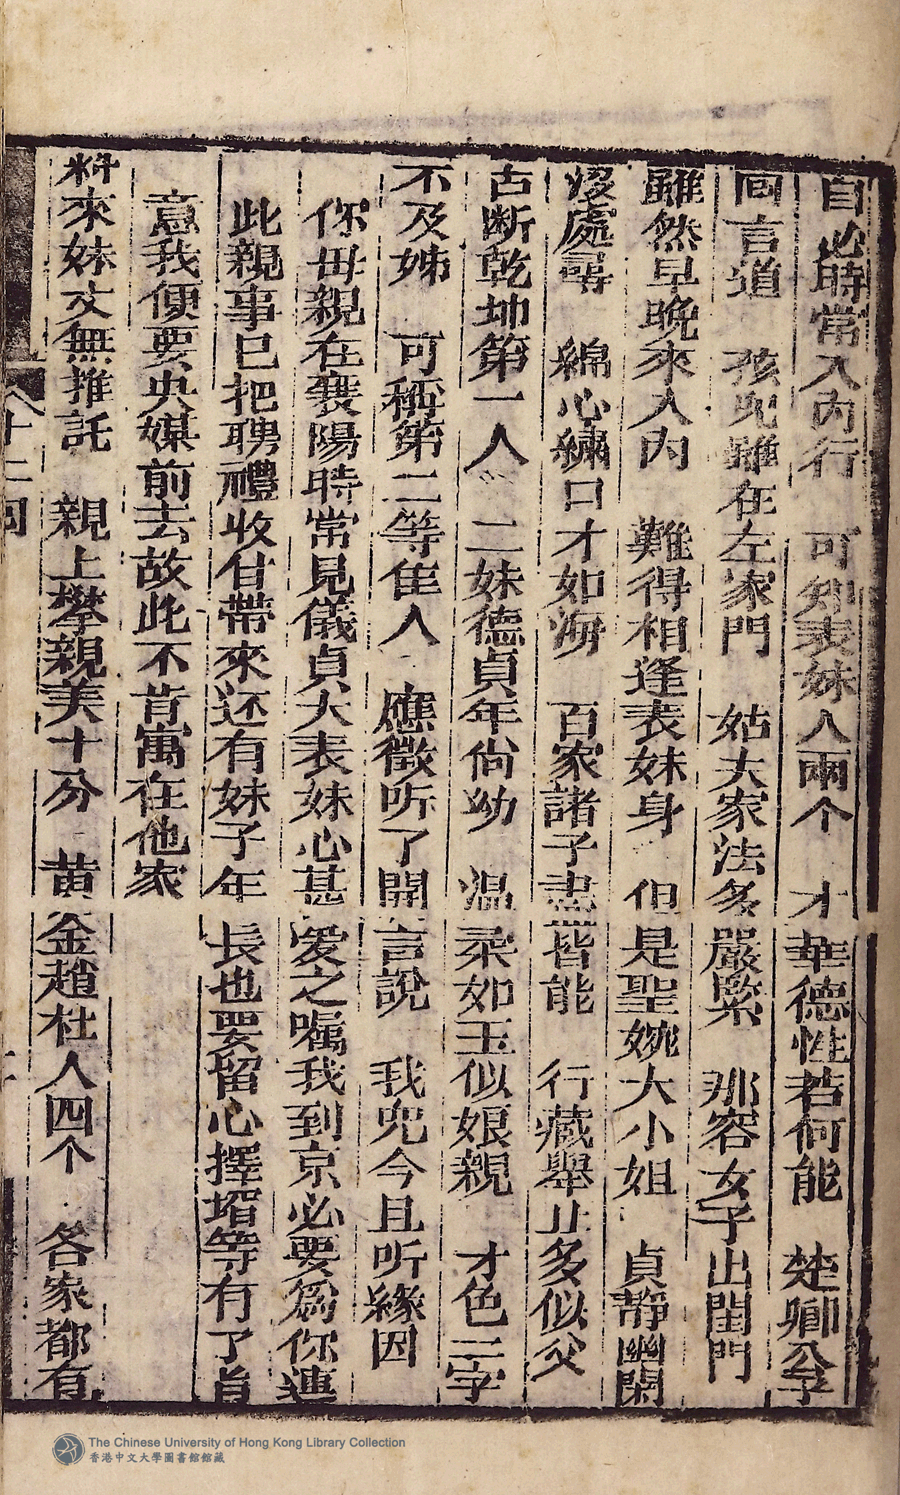 自必時常入內行　可知表妹人兩个　才華德性若何能　楚卿公子
回言道　孩兒雖在左家門　姑夫家法多嚴緊　那容女子出閨門
雖然早晚來入內　難得相逢表妹身　但是聖婉大小姐　貞靜幽閑
沒處尋　綿心繡口才如海　百家諸子盡皆能　行藏舉止多似父
古断乾坤第一人　二妹德貞年尙幼　温柔如玉似娘親　才色二字
不及姊　可称第二等隹人　應徴听了開言說　我兒今且听緣因
你母親在襄陽時常見儀貞大表妹心甚爱之嘱我到京必要為你連
此親事巳把聘禮收付帶來还有妹子年長也要留心擇壻等有了眞
意我便要央媒前去故此不肯寓在他家
料來妹丈無推託　親上攀親美十分　黄金趙杜人四个　各家都有
十二囬
The Chinese University of Hong Kong Library Collection
香港中文大學圖書館館藏